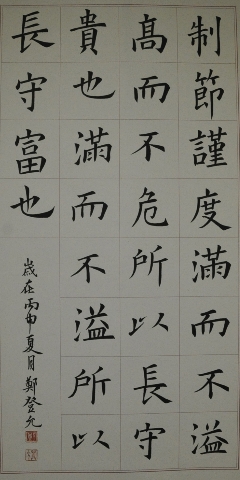 制節謹度滿而不溢
高而不危所以長守
貴也滿而不溢所以
長守富也
歲在丙申夏月鄭登允